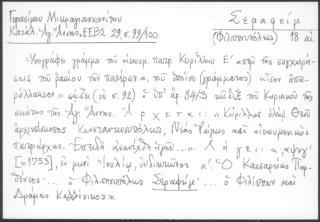 Γερασίμου Μικραγιαννανίτου
Κατάλ. Ἁγ. Ἄννης, ΕΕΒΣ 29, σ. 99/100
Σεραφείμ
(Φιλιππουπόλεως) 18 αἰ
"Ὑπογράφει γράμμα τοῦ οἰκουμ. πατρ. Κυρίλλου Ε΄ περὶ τῆς συγχωρή-
σεως τοῦ βαΐου τῶν πατέρων", τοῦ ὁποίου (γράμματος) "ἴσον ἀπα-
ράλλακτον" σώζει (ἐν σ. 92) ὁ ὑπ' ἀρ. 84/3 κῶδιξ τοῦ Κυριακοῦ τῆς
σκήτης τῆς Ἁγ. Ἄννης. Ἄρχεται: "Κύριλλος ἐλέῳ Θεοῦ
ἀρχιεπίσκοπος Κωνσταντινουπόλεως, Νέας Ῥώμης καὶ οἰκουμενικὸς
πατριάρχης. Ἐπειδὴ ἀνηνέχθη ἡμῖν..." Λήγει: "͵αψνγʹ
[=1753], ἐν μηνὶ Ἰουλίῳ, ἰνδικτιῶνος αʹ. Ὁ Καισαρείας Παρ-
θένιος... ὁ Φιλιππουπόλεως Σεραφείμ... ὁ Φιλίππων καὶ
Δράμας Καλλίνικος".